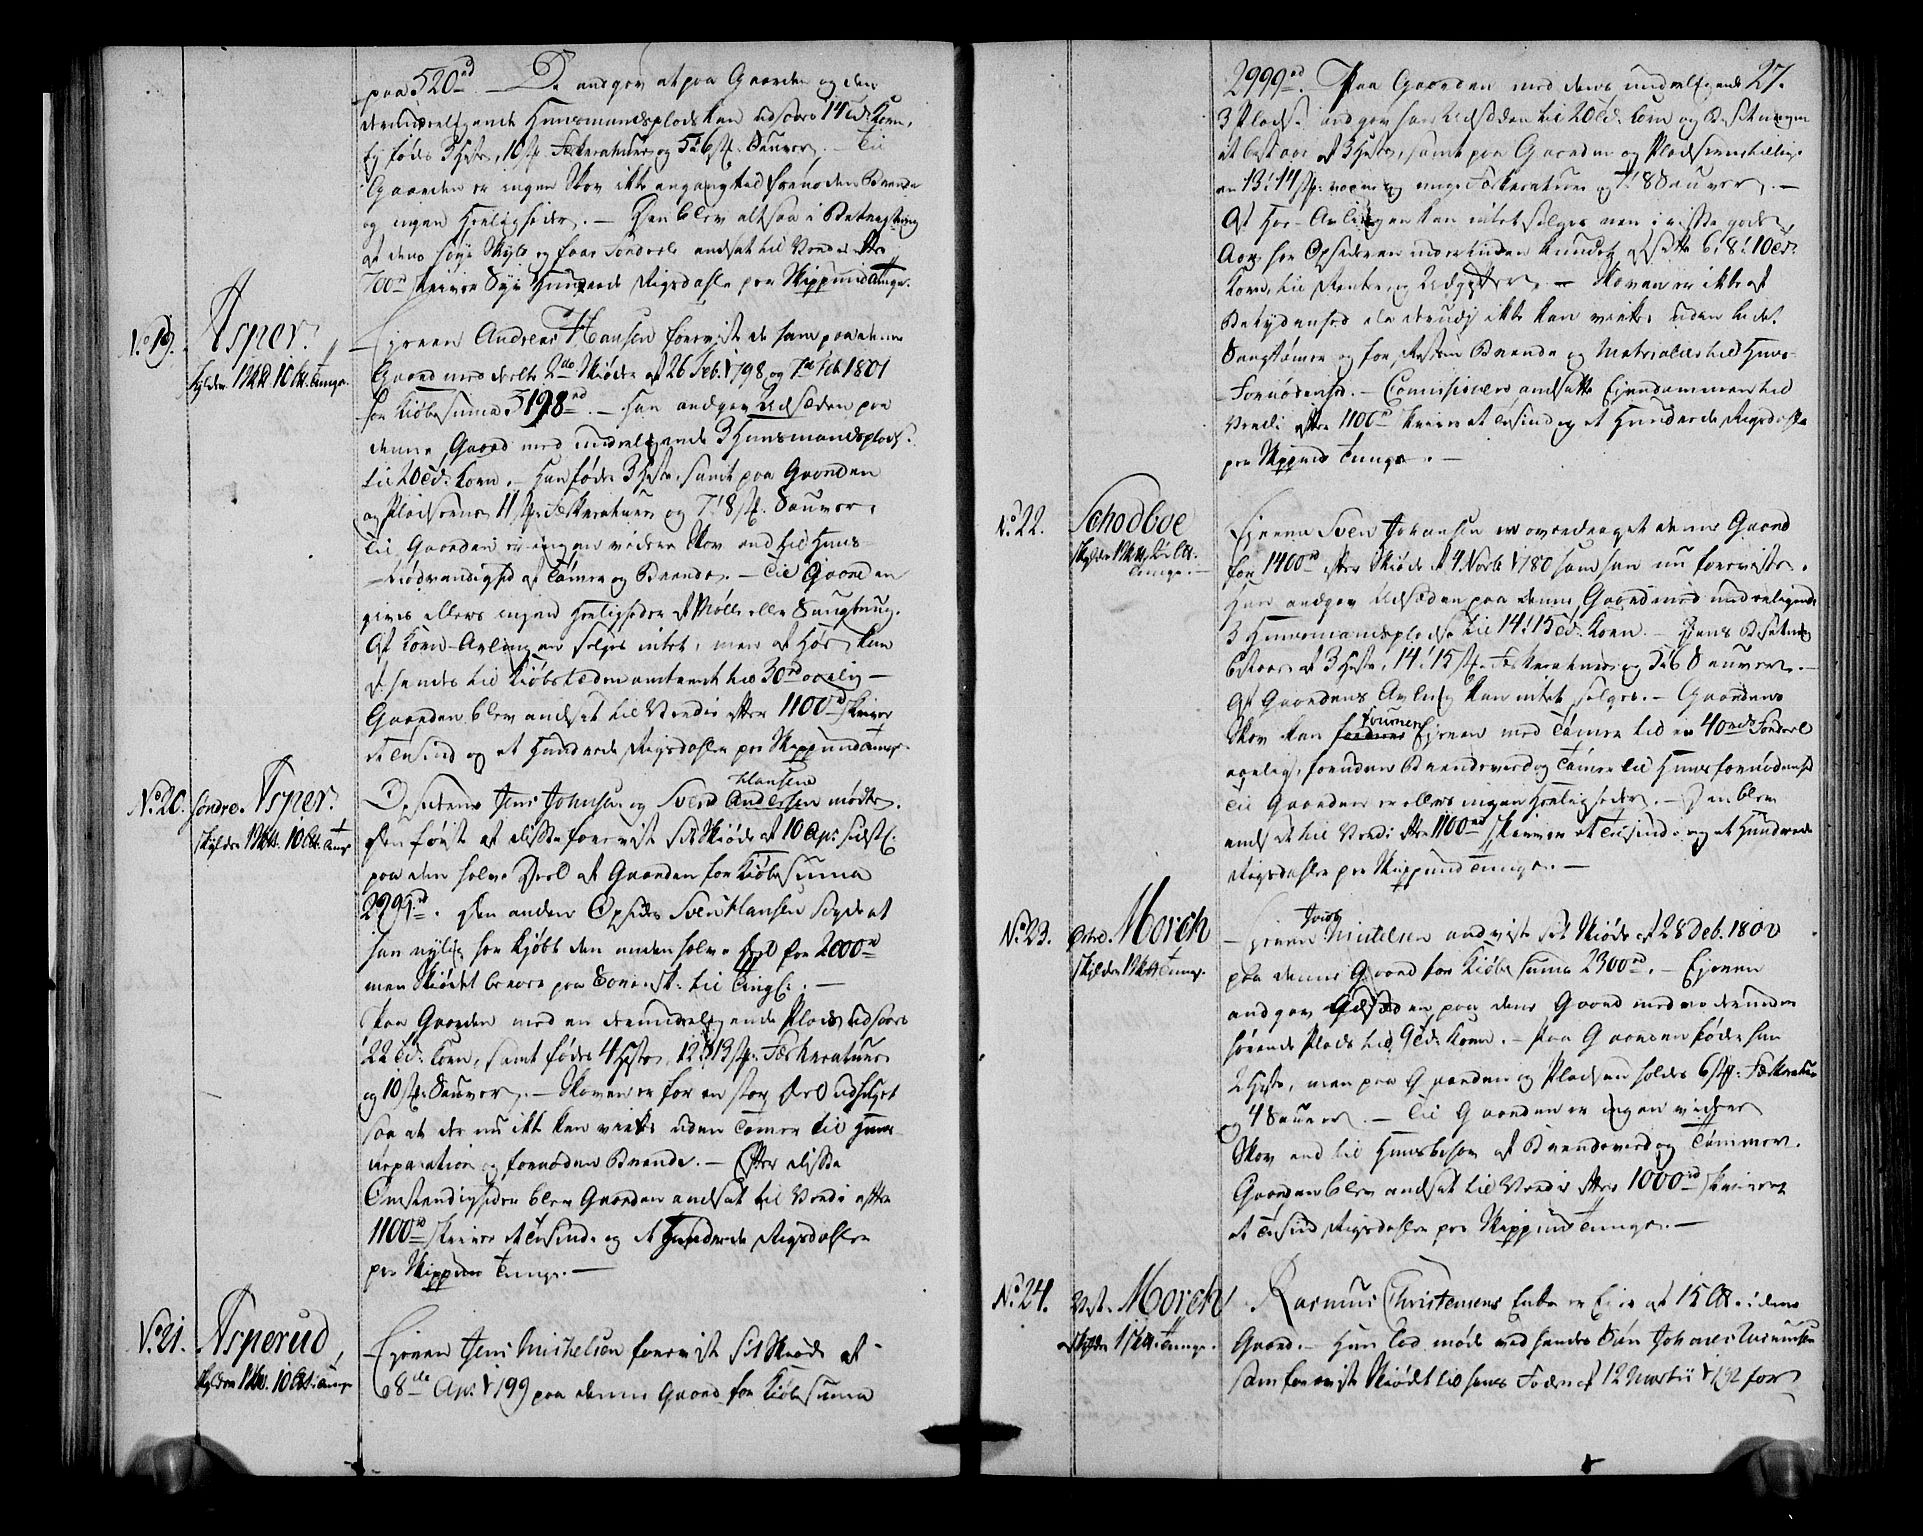 paa 520rd. — De andgav at paa Gaarden og den
underliggende Huusmandsplads kan udsaaes 14 td: Korn,
og fødes 3 Heste, 10 st. Fækreature og 5 à 6 st. Sauver. — Til
Gaarden er ingen Skov ikke engang til fornøden Brænde
og ingen Herligheder. — Den blev altsaa i Betragtning
af dens høye Skyld og faae Fordeele andsat til Værdie efter
700rd skriver Syv Hundrede Rigsdahler per Skippund Tunge.
No. 19.
Asper.
skylder 1 Skt 10 Lt. Tunge.
Ejeren Andreas Hansen foreviste de ham paa denne
Gaard meddeelte 2de Skiøder af 26 Feb. 1798 og 7de Feb 1801
for Kiøbesuma 5198rd. — Han andgav Udsæden paa
denne Gaard med underliggende 3 Huusmandspladse
til 20 td: Korn. — Han føder 3 Heste, samt paa Gaarden
og Pladserne 11 st: Fækreature og 7 à 8 st. Sauver.
Til Gaarden er ingen videre Skov end til Huus-
Nødvendighed af Tømer og Brænde. — Til Gaarden
gives ellers ingen Herligheder af Mølle eller Saugbrug.
Af Korn-Avlingen selges intet, men af Høe kan
afsendes til Kiøbstæden omtrent for 30rd aarlig —
Gaarden blev andsat til Værdie efter 1100rd skriver
et Tusind og et Hundrede Rigsdahler per Skippund Tunge.
No. 20.
søndre Asper.
skylder 1 Skt. 10 Lt. Tunge
Opsiderne Jens Johnsen og Svend Andersen Hansen mødte.
Den første af disse foreviste sit Skiøde af 10 Apr: sidstl:
paa den halve Deel af Gaarden for Kiøbesuma
2791rd. Den anden Opsider Sven Hansen sagde at
han nylig har kjøbt den anden halve Deel for 2000rd
men Skiødet beroer paa Sorenskr: til Tingl: . —
Paa Gaarden med en underliggende Plads udsaaes
22 td: Korn, samt fødes 4 Heste, 12 à 13 st. Fækreature
og 10 st. Sauver. — Skoven er for en stor Deel udhugget
saa at der nu ikke kan virkes uden Tømer til Huus-
reparation og fornøden Brænde. — Efter disse
Omstændigheder blev Gaarden andsat til Værdie efter
1100rd skriver et Tusinde og et Hundrede Rigsdahler
per Skippund Tunge. —
No. 21.
Asperud,
skylder 1 Skt. 10 Lt. Tunge
Ejeren Jens Michelsen foreviste sit Skiøde af
8de Apr: 1799 paa denne Gaard for Kiøbesuma
27.
2999rd. Paa Gaarden med dens underliggende
3 Pladse andgav han Udsæden til 20 td: Korn og Besetningen
at bestaae af 3 Heste, samt paa Gaarden og Pladserne tillige
en 13 à 14 st: og unge Fækreature og 7 à 8 Sauver. —
Af Høe-Avlingen kan intet selges men i visse gode
Aar har Opsideren undertiden kundet afsætte 6, 8 à 10 td:
Korn, til Renter og Udgifter. — Skoven er ikke af
Betydenhed da derudj ikke kan virkes uden lidet
Saugtømer og for Resten Brænde og Materialier til Huus-
Fornødenhed. — Comissionen andsatte Ejendommen til
Værdi efter 1100rd skriver et Tusind og et Hundrede Rigsdahler
per Skippund Tunge. —
No. 22.
Schodboe
skylder 1 Skt. Lt.
Tunge. —
Ejeren Sven Johansen er overdraget denne Gaard
for 1400rd efter Skiøde af 4 Novb 1780 som han nu foreviste.
Han andgav Udsæden paa denne Gaard med underliggende
3 Huusmandspladse til 14 à 15 td: Korn. — Dens Besetning
bestaaer af 3 Heste, 14 à 15 st. Fækreature og 5 à 6 Sauver. —
Af Gaardens Avling kan intet selges. — Gaardens
Skov kan fournere Ejeren med Tømer til en 40rds Fordeel
aarlig, foruden Brændeved og Tømer til Huusfornødenhed
Til Gaarden er ellers ingen Herligheder. — Den blev
ansat til Værdi efter 1100rd skriver et Tusinde og et Hundrede
Rigsdahler per Skippund Tunge. —
No. 23.
østre. Morch
skylder 1 Skt Tunge.
Ejeren Jacob Mickelsen andviste sit Skiøde af 28 Feb. 1800
paa denne Gaard for Kiøbesuma 2300rd. — Ejeren
andgav Udsæden paa denne Gaard med en derunder
hørende Plads til 9 td: Korn. — Paa Gaarden føder han
2 Heste, men paa Gaarden og Pladsen holdes 6 st: Fækreature
og 4 Sauver. — Til Gaarden er ingen videre
Skov end til Huusbehov af Brændeved og Tømmer.
Gaarden blev andsat til Værdie efter 1000rd skriver
et Tusind Rigsdahler per Skippund Tunge. —
No. 24.
Vest. Morch
skylder 1 Skt. Tunge.
Rasmus Christensens Enke er Ejer af 15 Lt. i denne
Gaard. — Hun lod møde ved hendes Søn Johannes Rasmussen
som foreviste Skiødet til hans Fader af 12 Martii 1792 for